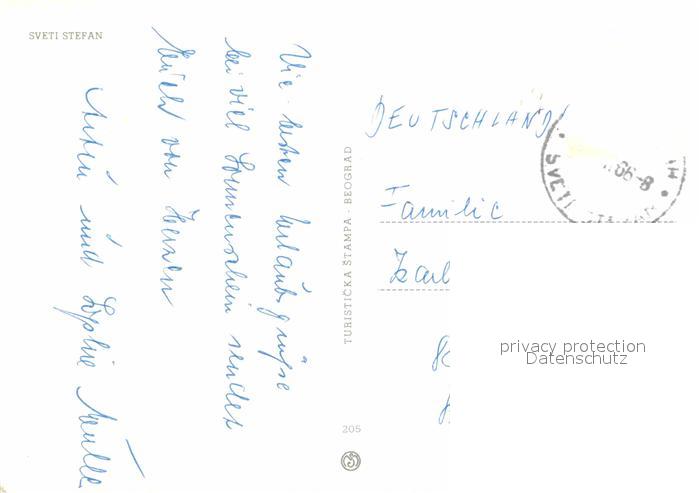 SVETI STEFAN
Die besten Urlaubsgrüße
bei viel Sonnenschein sendet
Euch von Herzen
und Sophie
TURISTIČKA ŠTAMPA - BEOGRAD
205
DEUTSCHLAND
Familie
Karl
privacy protection
Datenschutz
66-8
SVETI